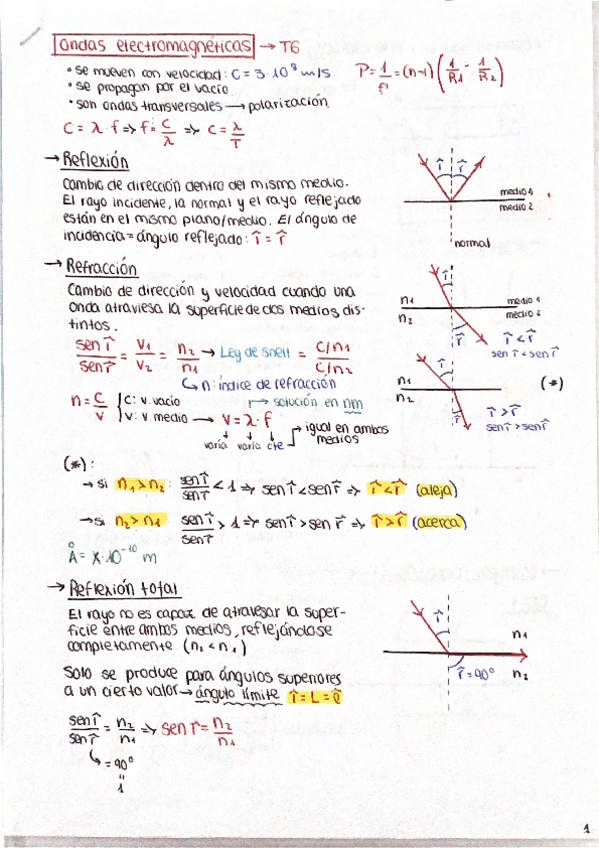 Ondas electromagnéticas → T6
• se mueven con velocidad: C = 3·10⁸ m/s
• se propagan por el vacío.
• son ondas transversales → polarización
P = 1/f' = (n-1) (1/R1 - 1/R2)
C = λ·f ⇒ f = C/λ ⇒ C = λ/T
→ Reflexión
Cambio de dirección dentro del mismo medio.
El rayo incidente, la normal y el rayo reflejado
están en el mismo plano/medio. El ángulo de
incidencia = ángulo reflejado: î = r̂
î r̂
medio 1
medio 2
normal
→ Refracción
Cambio de dirección y velocidad cuando una
onda atraviesa la superficie de dos medios dis-
tintos.
sen î / sen r̂ = V1/V2 = n2/n1 → Ley de snell = C/n1 / C/n2
↳ n: índice de refracción
n = C/V { C: v. vacío
V: v. medio → V = λ·f
→ solución en nm
varía varía cte → igual en ambos
medios
î
n1 medio 1
n2 medio 2
r̂
î < r̂
sen î < sen r̂
î
n1
n2
r̂
(*)
î > r̂
sen î > sen r̂
(*):
→ si n1 > n2: sen î / sen r̂ < 1 ⇒ sen î < sen r̂ ⇒ î < r̂ (aleja)
→ si n2 > n1 sen î / sen r̂ > 1 ⇒ sen î > sen r̂ ⇒ î > r̂ (acerca)
Å = X·10⁻¹⁰ m
→ Reflexión total
El rayo no es capaz de atravesar la super-
ficie entre ambos medios, reflejándose
completamente (n2 < n1)
Solo se produce para ángulos superiores
a un cierto valor → ángulo límite î = L = ℓ̂
sen î / sen r̂ = n2/n1 ⇒ sen r = n2/n1
↳ = 90º
"
1
î
n1
r̂ = 90º
n2
1